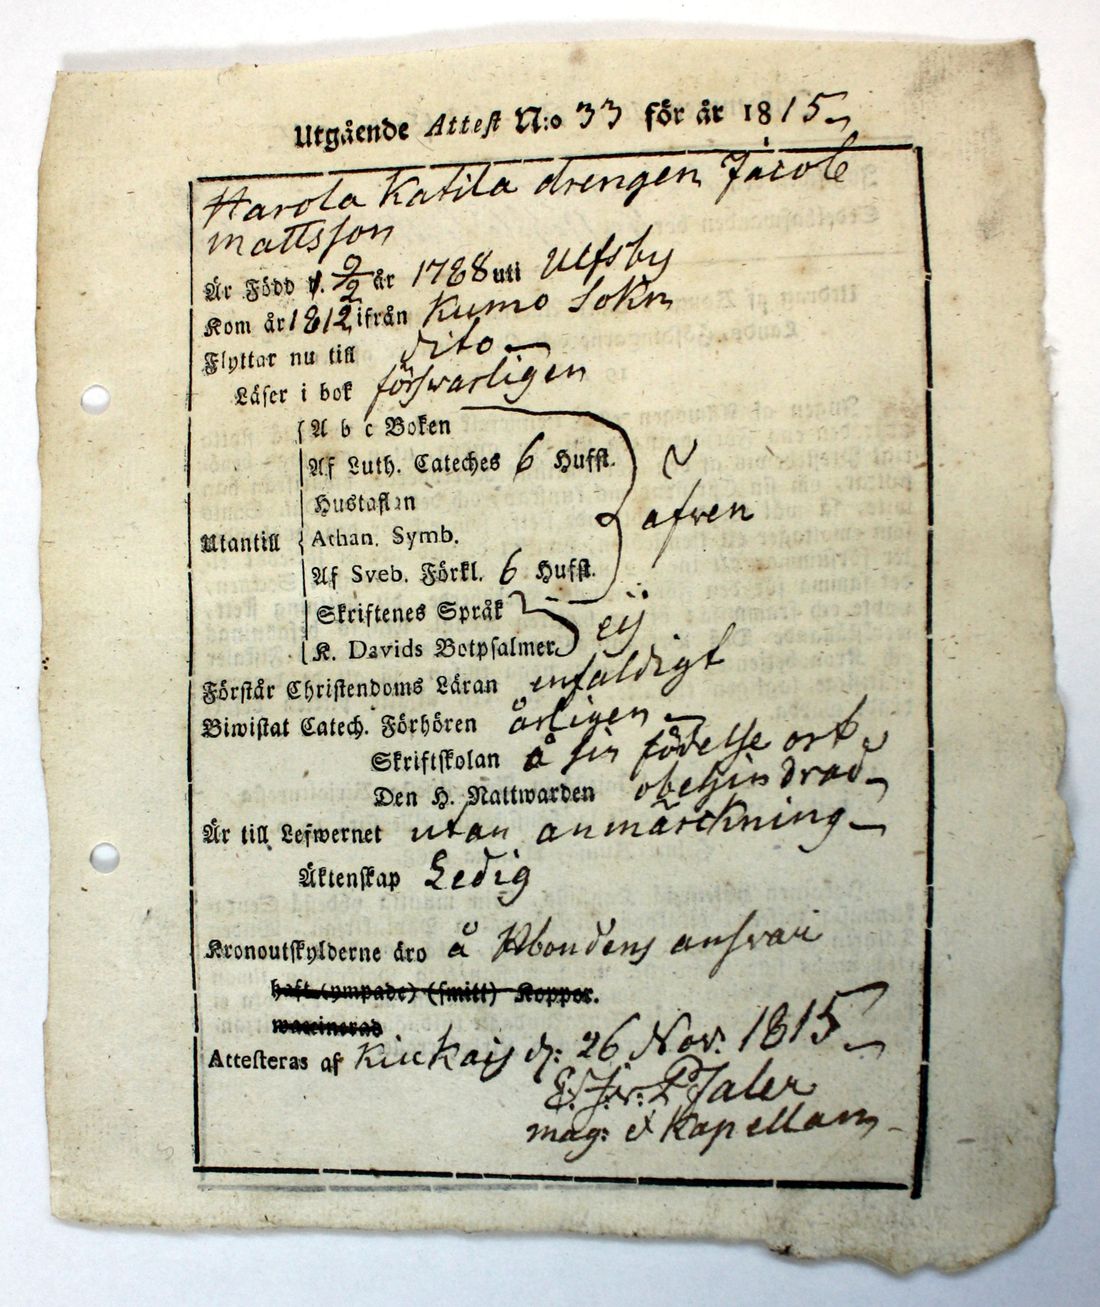 Utgående Attest N:o 33 för år 1815
Harola Katila drengen Jacob
Mattsson
Är Född d. 9/2 år 1788 uti Ulfsby
Kom år 1812 ifrån Kumo Sokn
Flyttar nu till dito
Läser i bok försvarligen
A b c Boken
Af Luth. Cateches 6 Hufst.
Hustaflan
Utantill
Athan. Symb.
äfwen
Af Sveb. Förkl. 6 Hufst.
Skriftenes Språk
K. Davids Botpsalmer
eij
Förstår Christendoms Läran enfaldigt
Biwistat Catech. Förhören årligen
Skriftskolan å sin födelse ort
Den H. Nattwarden obehindrad
Är till Lefwernet utan anmärckning
Äktenskap Ledig
Kronoutskylderne äro å Åboudens answar
haft (ympade) (smitt) Koppor.
waccinerad
Attesteras af Kiukais d: 26 Nov: 1815
mag: & Kapellan